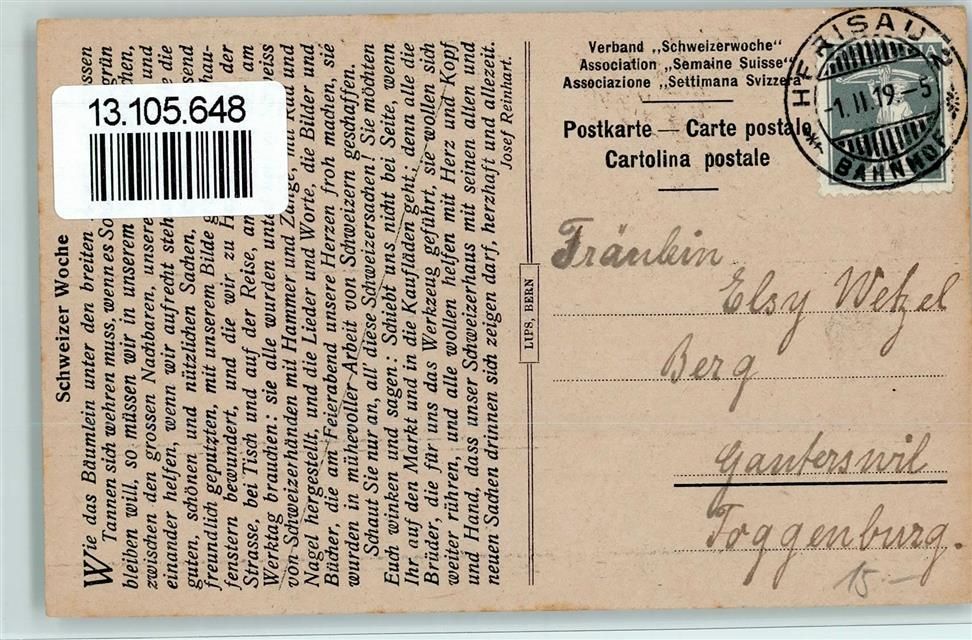 13.105.648
Schweizer Woche
Wie das Bäumlein unter den breiten
Tannen sich wehren muss, wenn es So
bleiben will, so müssen wir in unserem
zwischen den grossen Nachbaren, unsere
einander helfen, wenn wir aufrecht steh
guten, schönen und nützlichen Sachen,
freundlich geputzten, mit unserem Bilde
fenstern bewundert, und die wir zu H
Strasse, bei Tisch und auf der Reise, am
Werktag brauchen: sie alle wurden unte
von Schweizerhänden mit Hammer und Zange, mit Rad und
Nagel hergestellt, und die Lieder und Worte, die Bilder und
Bücher, die am Feierabend unsere Herzen froh machen, sie
wurden in mühevoller Arbeit von Schweizern geschaffen.
Schaut Sie nur an, all' diese Schweizersachen! Sie möchten
Euch winken und sagen: Schiebt uns nicht bei Seite, wenn
Ihr auf den Markt und in die Kaufläden geht; denn alle die
Brüder, die für uns das Werkzeug geführt, sie wollen sich
weiter rühren, und alle wollen helfen mit Herz und Kopf
und Hand, dass unser Schweizerhaus mit seinen alten und
neuen Sachen drinnen sich zeigen darf, herzhaft und allezeit.
Josef Reinhart.
LIPS, BERN
Verband „Schweizerwoche"
Association „Semaine Suisse"
Associazione „Settimana Svizzera
Postkarte — Carte postale
Cartolina postale
HERISAU 2
-1.II.19.-5
BAHNHOF
Fräulein
Elsy Wetzel
Berg
Ganterswil
Toggenburg.
15.-